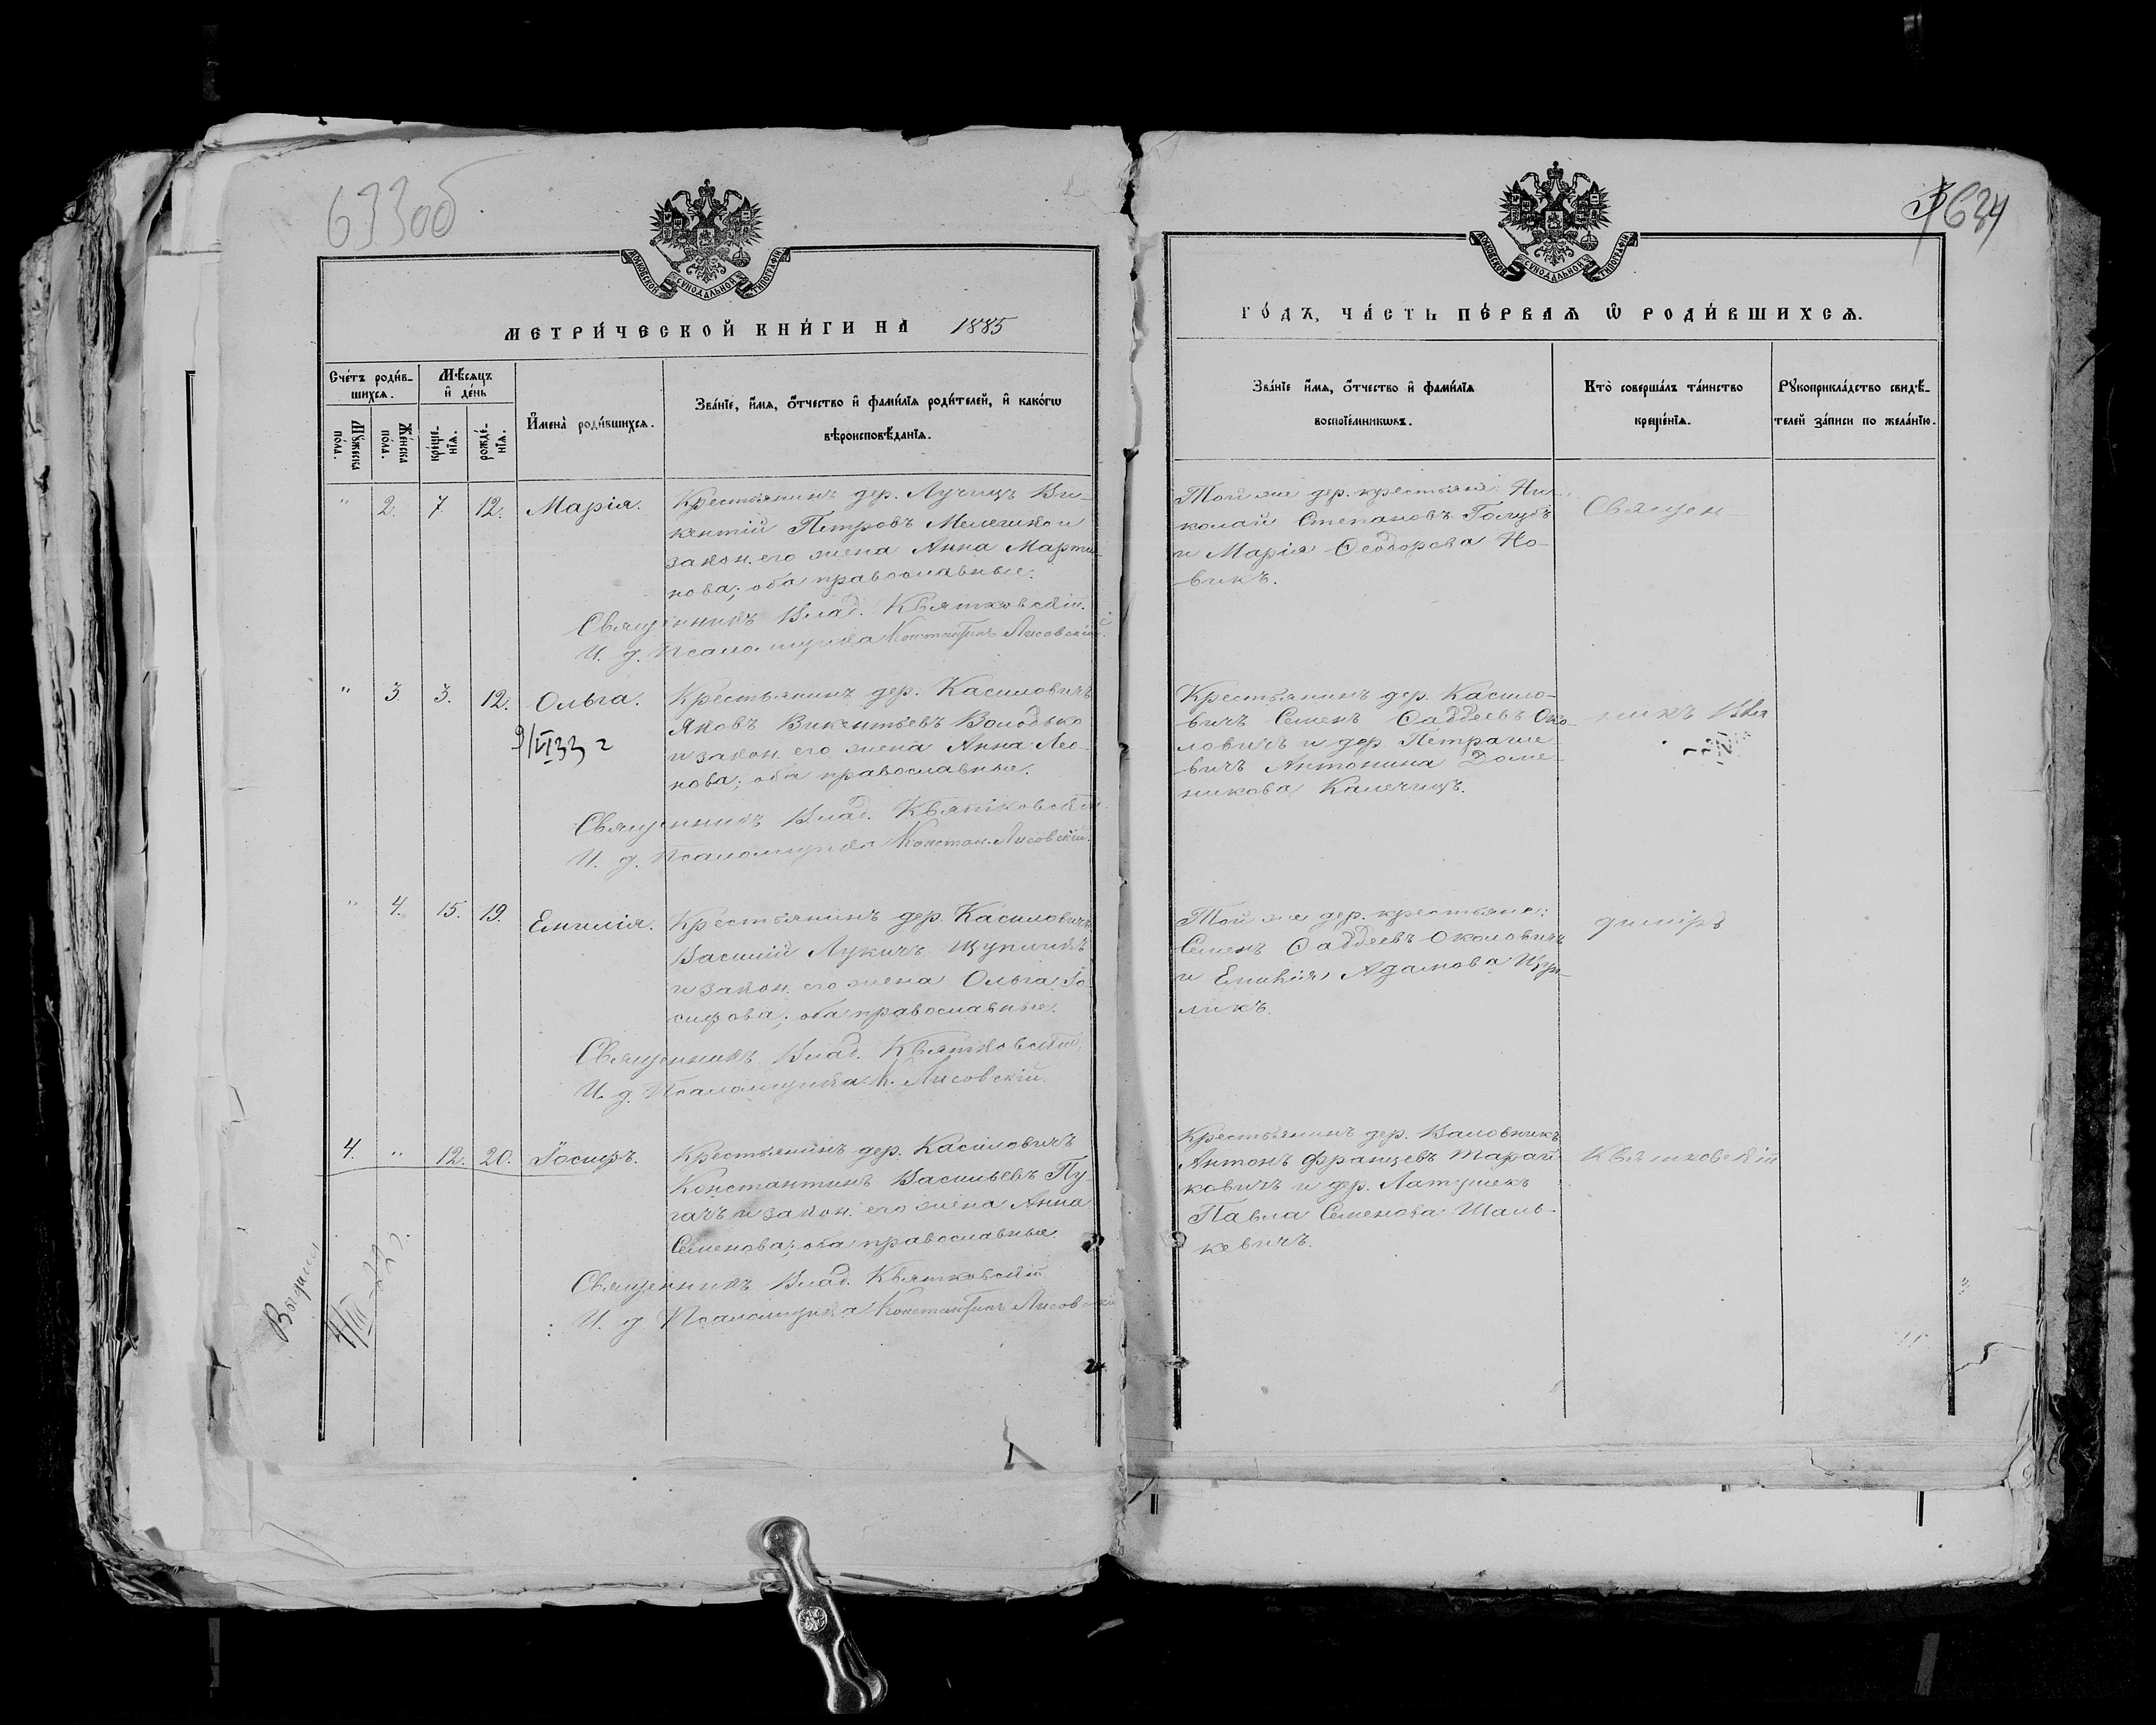 633об
МОСКОВСКОЙ СУНОДАЛЬНОЙ ТИПОГРАФІИ
МЕТРИ́ЧЕСКОЙ КНИ́ГИ НА 1885
Сче́тъ роди́в-
шихсѧ.
Мѣ́сѧцъ
и҆ де́нь
Мꙋ́жеска
по́ла.
Же́нска
по́ла.
креще-
нїѧ.
рожде́-
нїѧ.
И҆мена̀ роди́вшихсѧ.
Зва́нїе, и҆́мѧ, ѻ҆́тчество и҆ фами́лїѧ роди́телей, и҆ како́гѡ
вѣроисповѣ́данїѧ.
" 2. 7 12. Марія.
Крестьянинъ дер. Лучицъ Ви-
кентій Петровъ Мелешко и
закон. его жена Анна Марти-
нова; оба православные.
Священникъ Влад. Квятковскій.
И. д. Псаломщика Константинъ Лисовскій.
" 3. 3. 12. Ольга.
9/VI 33 г
Крестьянинъ дер. Касиловичъ
Яковъ Викентьевъ Володько
и закон. его жена Анна Лео-
нова; оба православные.
Священникъ Влад. Квятковскій.
И. д. Псаломщика Констан. Лисовскій.
" 4. 15. 19. Емилія.
Крестьянинъ дер. Касиловичъ
Василій Лукичъ Щупликъ
и закон. его жена Ольга Іо-
сифова; оба православные.
Священникъ Влад. Квятковскій.
И. д. Псаломщика К. Лисовскій.
4. " 12. 20. Іосифъ.
Крестьянинъ дер. Касиловичъ
Константинъ Васильевъ Пу-
гачъ и закон. его жена Анна
Семенова; оба православные.
Священникъ Влад. Квятковскій
И. д. Псаломщика Константинъ Лисовскій
4/III
634
МОСКОВСКОЙ СУНОДАЛЬНОЙ ТИПОГРАФІИ
ГО́ДЪ, ЧА́СТЬ ПЕ́РВАѦ Ѡ҆ РОДИ́ВШИХСѦ.
Зва́нїе и҆́мѧ, ѻ҆́тчество и҆ фами́лїѧ
воспрїе́мникѡвъ.
Кто̀ соверша́лъ та́инство
креще́нїѧ.
Рꙋкоприкла́дство свидѣ́-
телей за́писи по жела́нїю.
Той же дер. крестьяне: Ни-
колай Степановъ Голубъ
и Марія Ѳеодорова Но-
викъ.
Священ
Крестьянинъ дер. Касило-
вичъ Семенъ Ѳаддеевъ Око-
ловичъ и дер. Петраше-
вичъ Антонина Доме-
никова Калечицъ.
никъ Вла
Той же дер. крестьяне:
Семенъ Ѳаддеевъ Околовичъ
и Емилія Адамова Щуп-
ликъ.
диміръ
Крестьянинъ дер.Валовникъ
Антонъ Францевъ Тарай-
ковичъ и дер. Латушекъ
Павла Семенова Шаль-
кевичъ.
Квятковскій